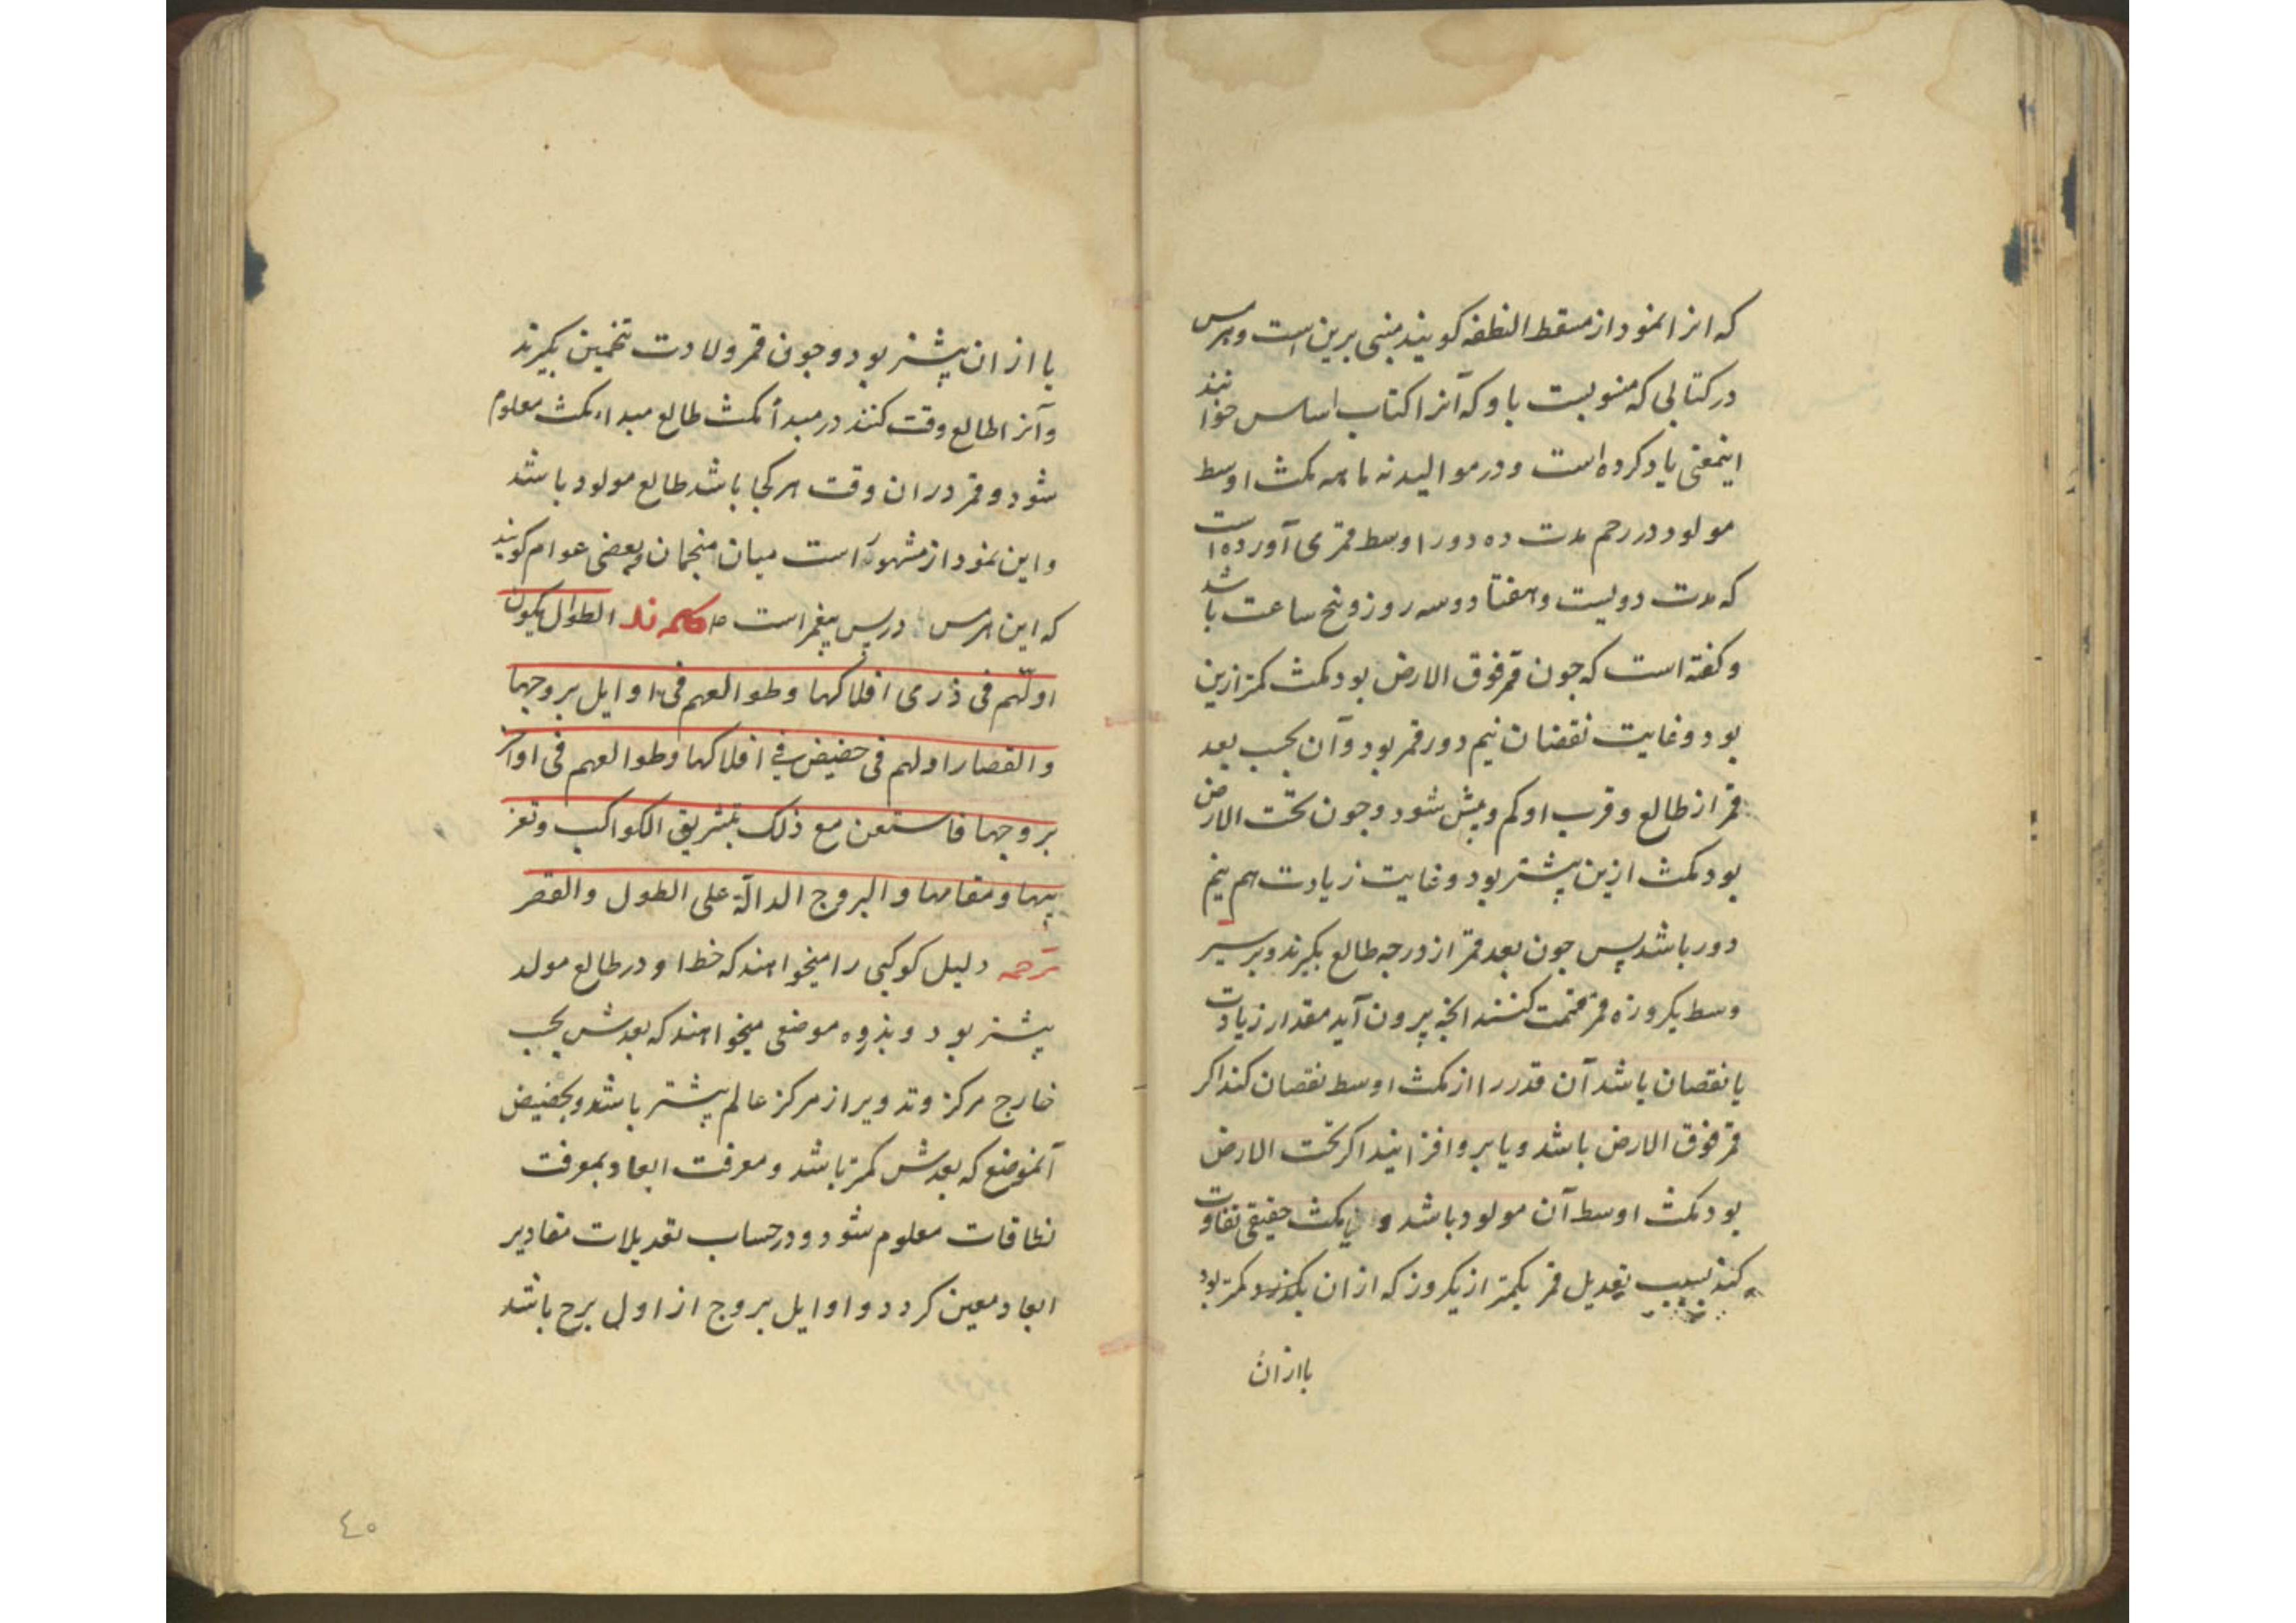 که انرا نمودار مسقط النطفه کویند مبنی برین است و هرمس
در کتابی که منسوبست باو که آنرا کتاب اساس خوانند
اینمعنی یاد کرده است و در موالید نه ماهه مکث اوسط
مولود در رحم مدت ده دور اوسط قمری آورده است
که مدت دویست و هفتاد و سه روز و پنج ساعت باشد
و کفته است که جون قمر فوق الارض بود مکث کمتر ازین
بود و غایت نقصان نیم دور قمر بود و آن بحسب بعد
قمر از طالع و قرب او کم و بیش شود و جون تحت الارض
بود مکث ازین بیشتر بود و غایت زیادت هم نیم
دور باشد پس جون بعد قمر از درجه طالع بکیرند و بر سیر
وسط یکروزه قمر قسمت کنند انجه بیرون آید مقدار زیادت
یا نقصان باشد آن قدر را از مکث اوسط نقصان کند اکر
قمر فوق الارض باشد و یا برو افزایند اکر تحت الارض
بود مکث اوسط آن مولود باشد و مکث حقیقی تفاوت
کند بسبب تعدیل قمر بکمتر از یکروز که از ان بکذرد کمتر بود
یا ازان
یا از ان بیشتر بود و جون قمر ولادت تخمین بکیرند
وآنرا طالع وقت کنند در مبدأ مکث طالع مبداء مکث معلوم
شود و قمر دران وقت هر کجا باشد طالع مولود باشد
و این نمودار مشهور است میان منجمان و بعضی عوام کویند
که این هرمس ادریس پیغمر است کلمه ند الطوال یکون
اولهم فی ذری افلاکها و طوالعهم فی اوایل بروجها
والقصار اولهم فی حضیض فی افلاکها وطوالعهم فی اواخر
بروجها فاستعن مع ذلک بتشریق الکواکب وتغر
یبها ومقامها والبروج الدالّة علی الطول والقصر
ترحمه دلیل کوکبی را میخواهند که خط او در طالع مولد
بیشتر بود و بذروه موضعی میخواهند که بعدش بحسب
خارج مرکز و تدویر از مرکز عالم بیشتر باشد و بحضیض
آنموضع که بعدش کمتر باشد و معرفت ابعاد بمعرفت
نطاقات معلوم شود و در حساب تعدیلات مقادیر
ابعاد معین کردد و اوایل بروج از اول برج باشد
٤٥